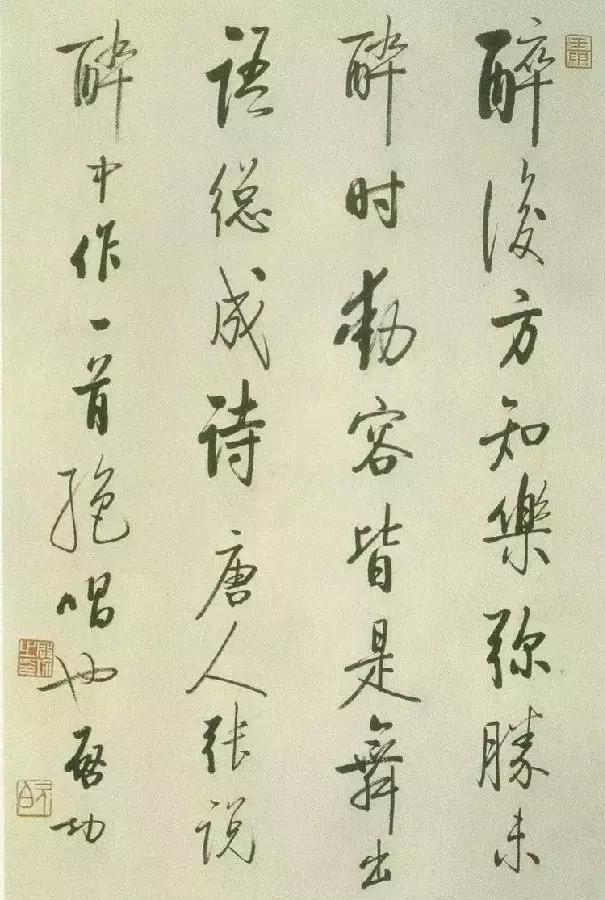 醉後方知樂弥勝未
醉时動容皆是舞出
语总成诗唐人张说
醉中作一首绝唱也启功